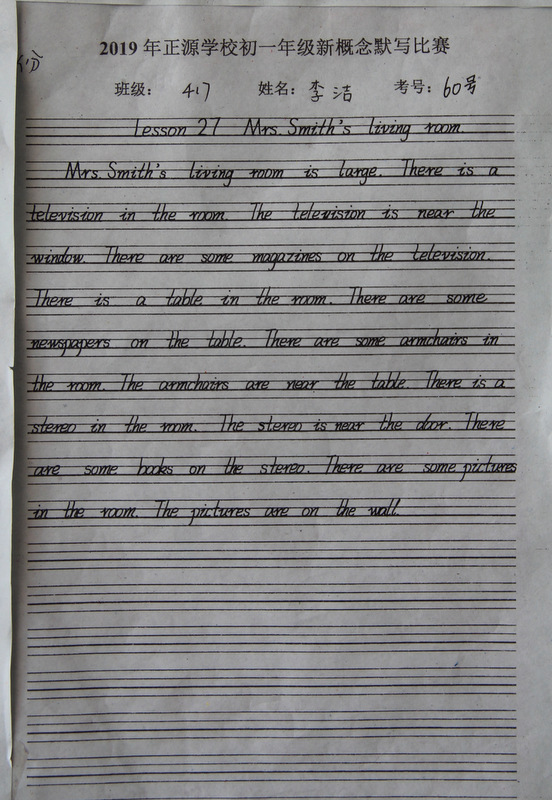 2019年正源学校初一年级新概念默写比赛
班级： 417 姓名：李洁 考号：60号
Lesson 27 Mrs. Smith's living room.
Mrs. Smith's living room is large. There is a
television in the room. The television is near the
window. There are some magazines on the television.
There is a table in the room. There are some
newspapers on the table. There are some armchairs in
the room. The armchairs are near the table. There is a
stereo in the room. The stereo is near the door. There
are some books on the stereo. There are some pictures
in the room. The pictures are on the wall.